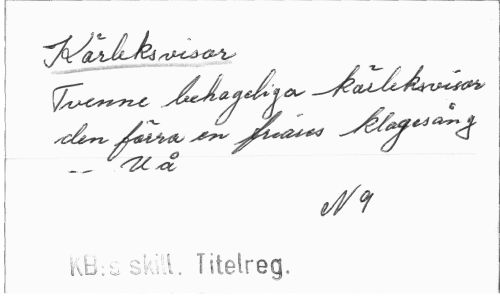 Kärleksvisor
Tvenne behageliga kärleksvisor
den förra en friares klagesång
-- U å
N 9
KB:s skill. Titelreg.